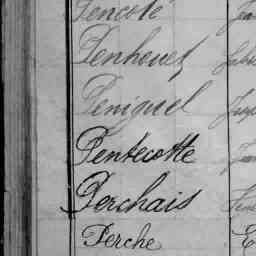 Pencolé
Penhouet
Peniguel
Pentecotte
Perchais
Perche E